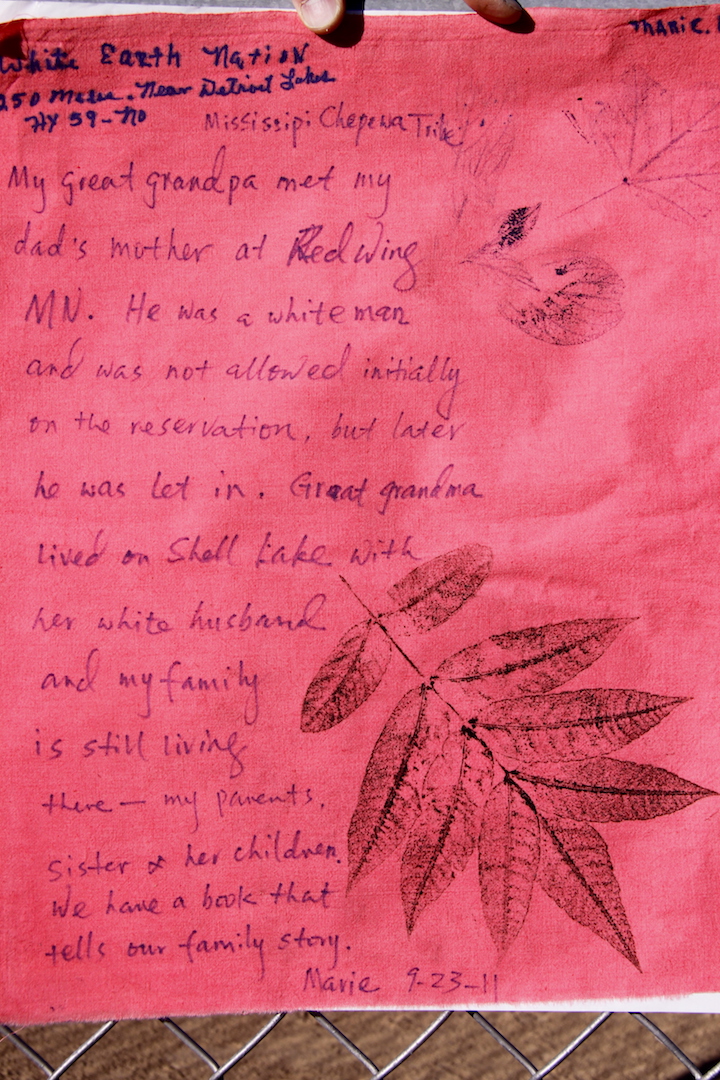 White Earth Nation
250 Miles. Near Detroit Lakes
Hy 59-No
Marie.
Mississipi Chepewa Tribe
My great grandpa met my
dad's mother at Redwing
MN. He was a white man
and was not allowed initially
on the reservation, but later
he was let in. Great grandma
lived on Shell Lake with
her white husband
and my family
is still living
there — my parents,
sister & her children.
We have a book that
tells our family story.
Marie 9-23-11